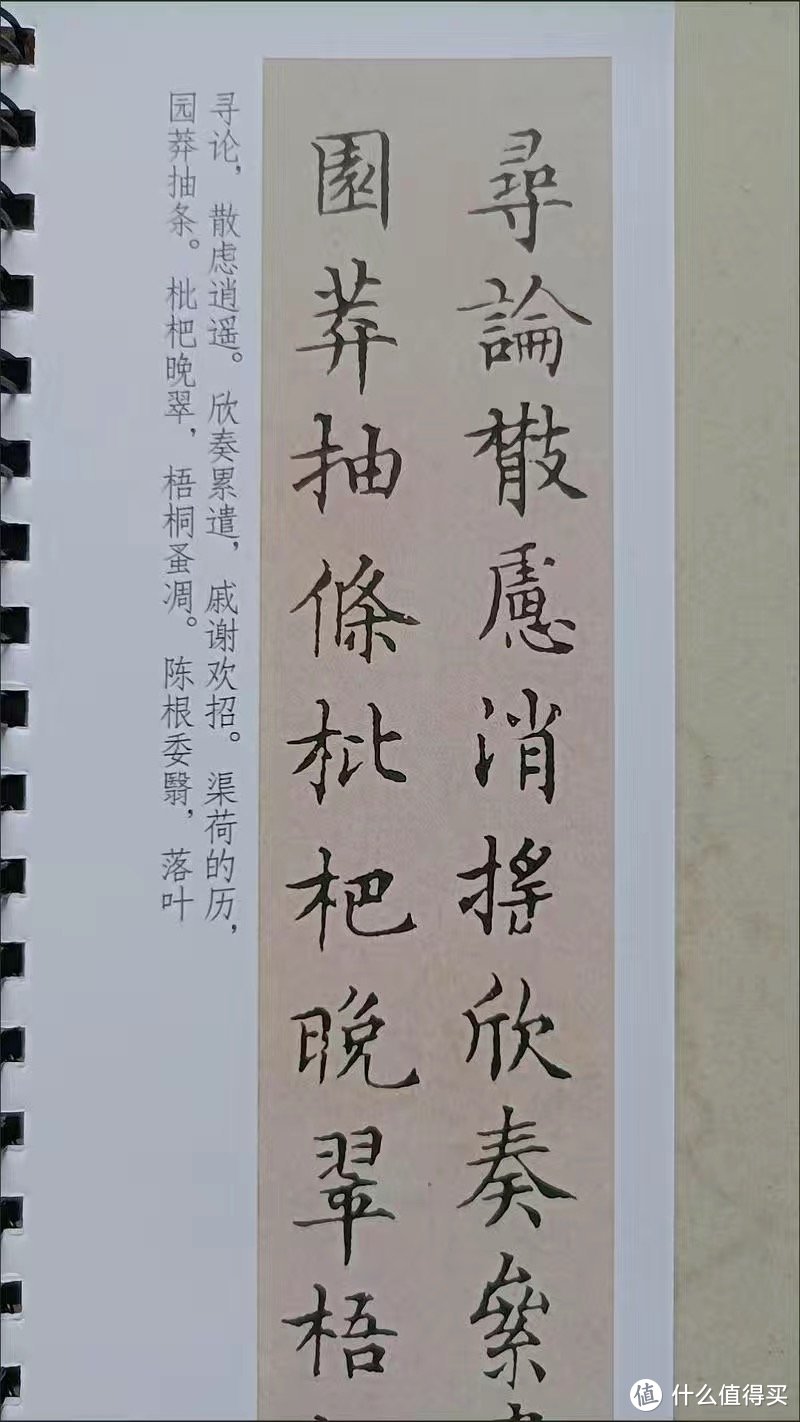 尋論散慮消搖欣奏絫
園莽抽條枇杷晚翠梧
寻论，散虑逍遥。欣奏累遣，戚谢欢招。渠荷的历，
园莽抽条。枇杷晚翠，梧桐蚤凋。陈根委翳，落叶
值 什么值得买